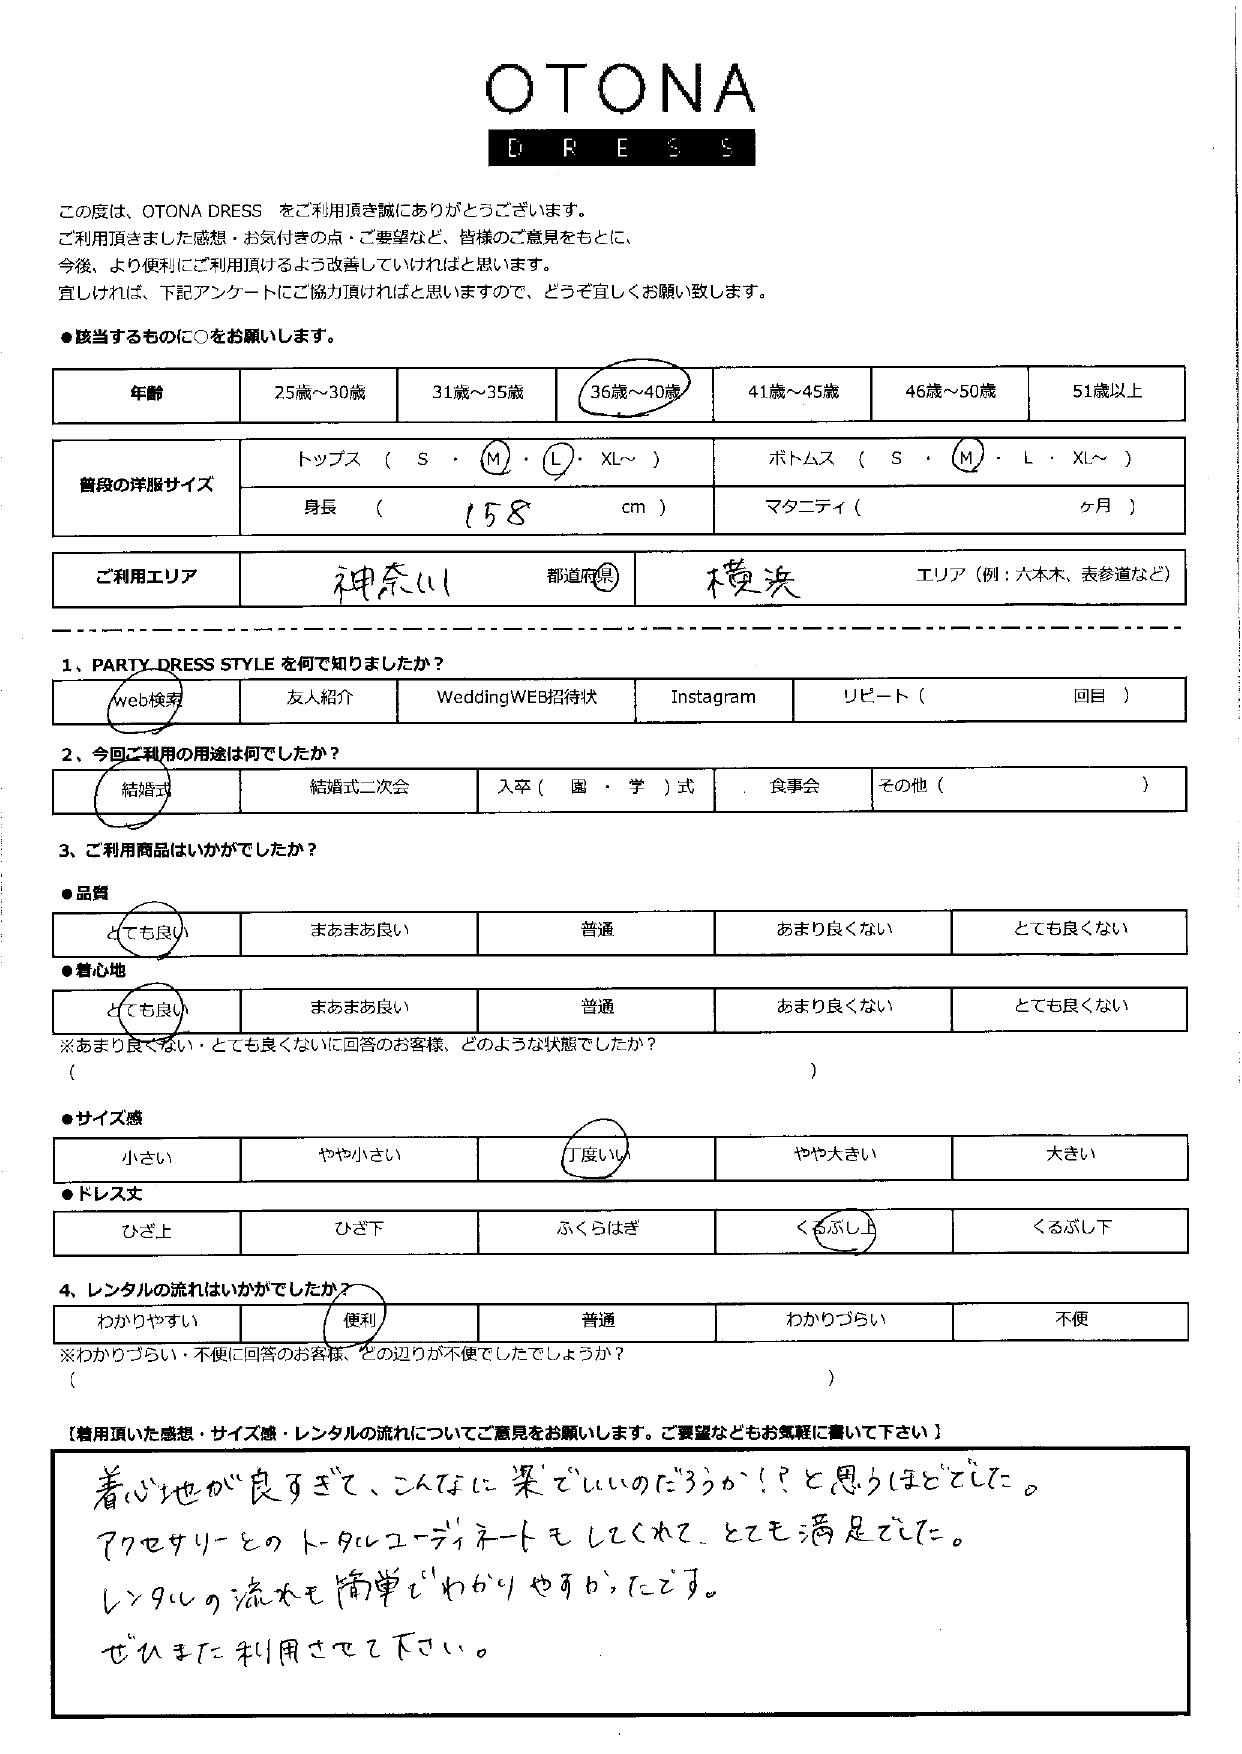 OTONA
DRESS
この度は、OTONA DRESS をご利用頂き誠にありがとうございます。
ご利用頂きました感想・お気付きの点・ご要望など、皆様のご意見をもとに、
今後、より便利にご利用頂けるよう改善していければと思います。
宜しければ、下記アンケートにご協力頂ければと思いますので、どうぞ宜しくお願い致します。
●該当するものに○をお願いします。
年齢 25歳～30歳 31歳～35歳 36歳～40歳 41歳～45歳 46歳～50歳 51歳以上
普段の洋服サイズ トップス ( S ・ M ・ L ・ XL～ ) ボトムス ( S ・ M ・ L ・ XL～ )
身長 ( 158 cm ) マタニティ ( ヶ月 )
ご利用エリア 神奈川 都道府県 横浜 エリア（例：六本木、表参道など）
1、PARTY DRESS STYLE を何で知りましたか？
web検索 友人紹介 WeddingWEB招待状 Instagram リピート ( 回目 )
2、今回ご利用の用途は何でしたか？
結婚式 結婚式二次会 入卒 ( 園 ・ 学 ) 式 食事会 その他 ( )
3、ご利用商品はいかがでしたか？
●品質
とても良い まあまあ良い 普通 あまり良くない とても良くない
●着心地
とても良い まあまあ良い 普通 あまり良くない とても良くない
※あまり良くない・とても良くないに回答のお客様、どのような状態でしたか？
( )
●サイズ感
小さい やや小さい 丁度いい やや大きい 大きい
●ドレス丈
ひざ上 ひざ下 ふくらはぎ くるぶし上 くるぶし下
4、レンタルの流れはいかがでしたか？
わかりやすい 便利 普通 わかりづらい 不便
※わかりづらい・不便に回答のお客様、どの辺りが不便でしたでしょうか？
( )
【着用頂いた感想・サイズ感・レンタルの流れについてご意見をお願いします。ご要望などもお気軽に書いて下さい 】
着心地が良すぎて、こんなに楽でいいのだろうか！？と思うほどでした。
アクセサリーとのトータルコーディネートもしてくれて、とても満足でした。
レンタルの流れも簡単でわかりやすかったです。
ぜひまた利用させて下さい。